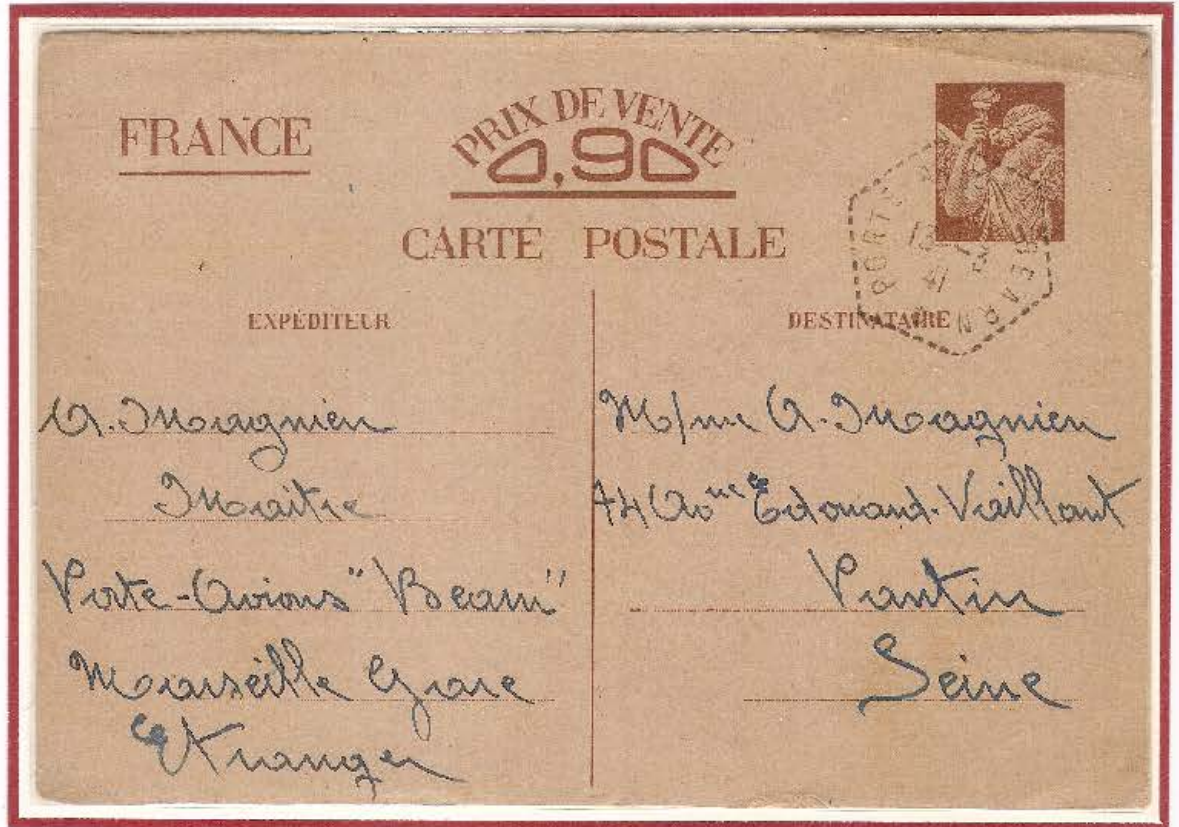 FRANCE
PRIX DE VENTE
0,90
CARTE POSTALE
EXPÉDITEUR
A. Magnien
Maitre
Porte-Avions "Bearn"
Marseille Gare
Etranger
DESTINATAIRE
M/me A. Magnien
74 Avnue Edouard-Vaillant
Pantin
Seine
PORTE
41
BEARN